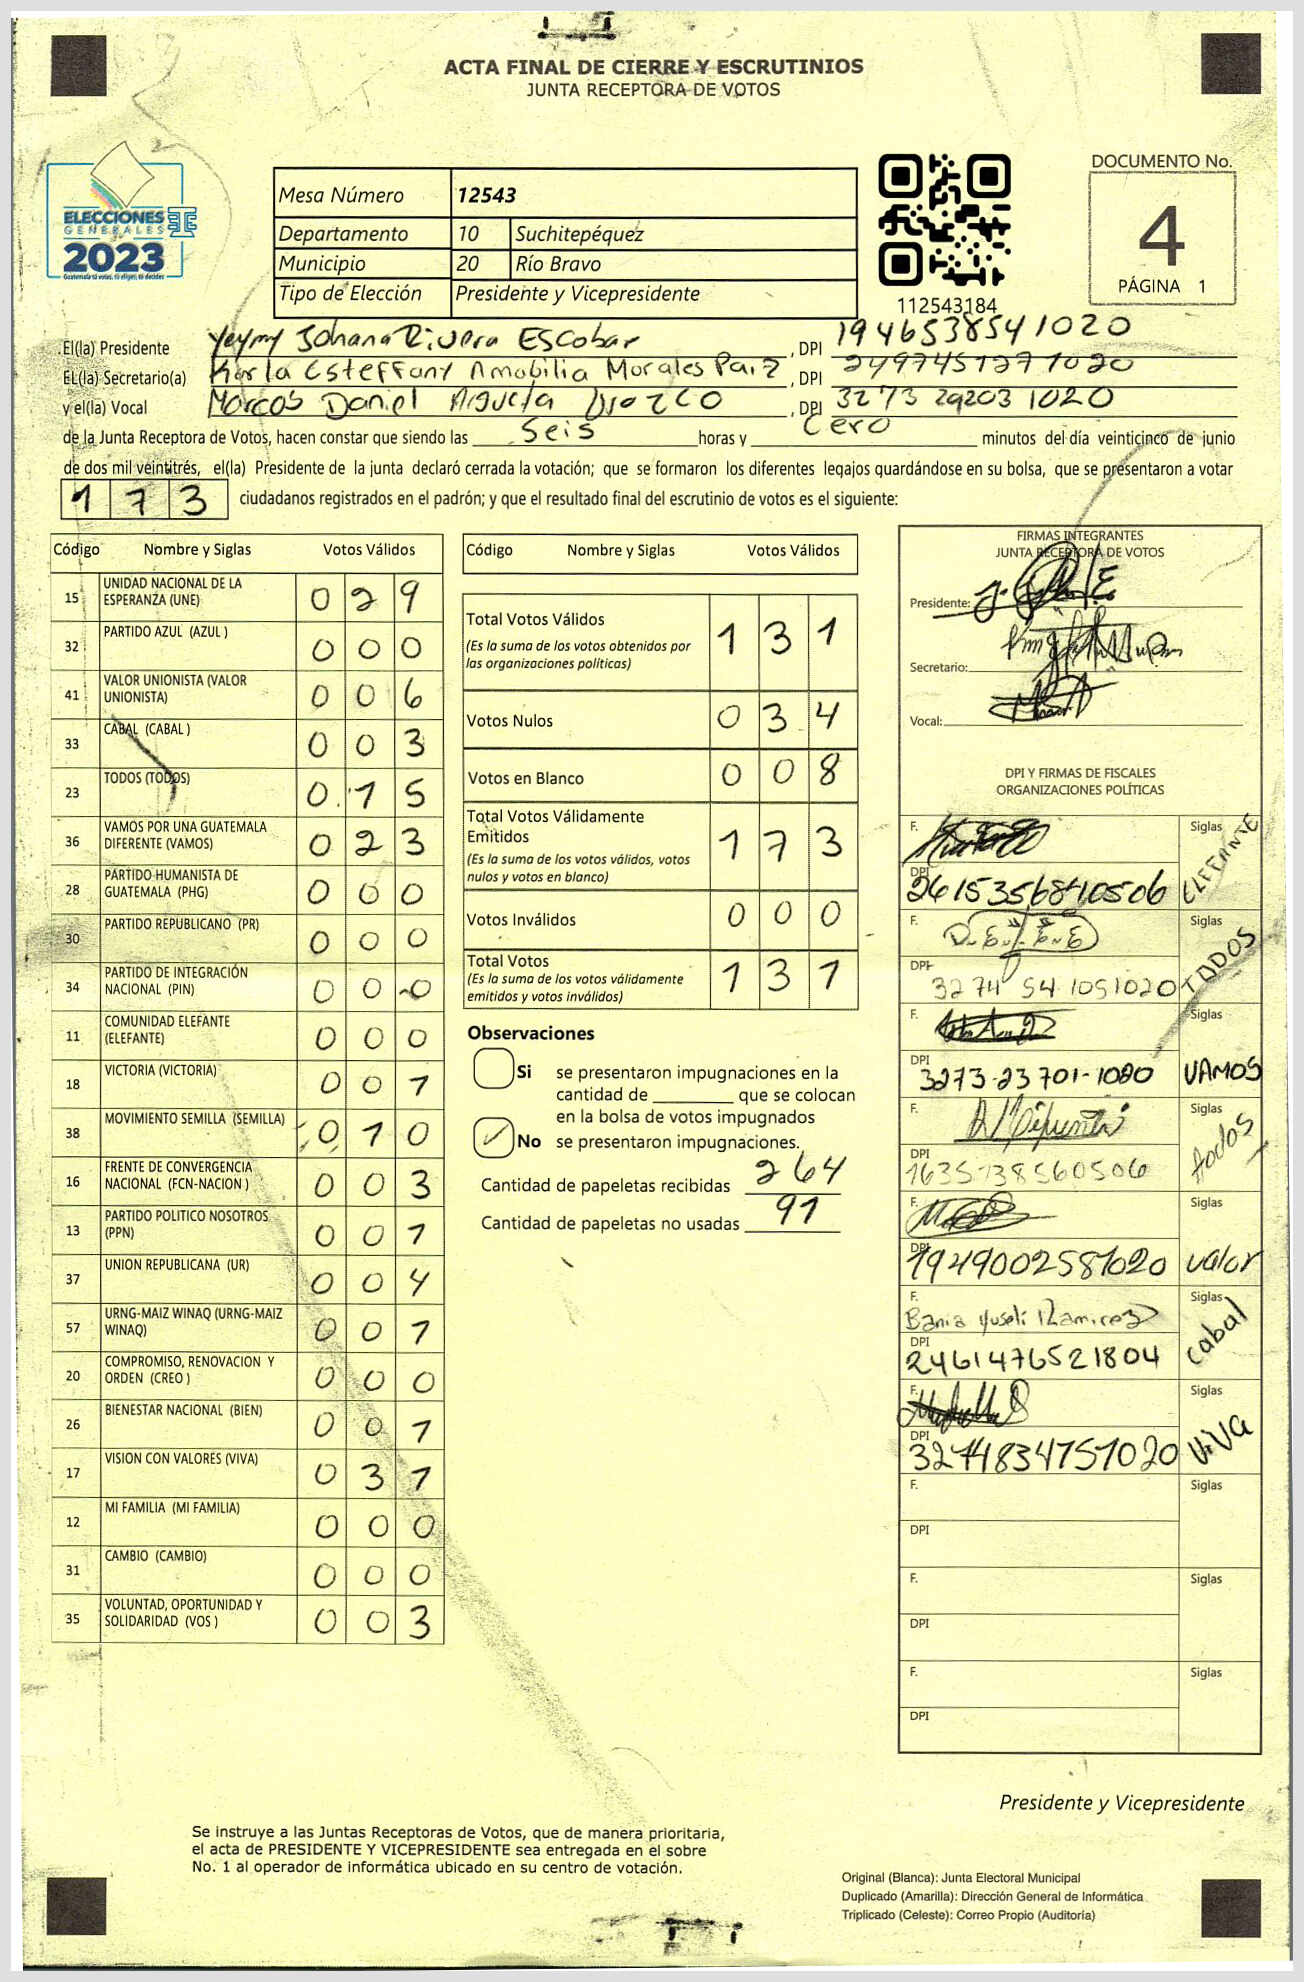 ACTA FINAL DE CIERRE Y ESCRUTINIOS
JUNTA RECEPTORA DE VOTOS
ELECCIONES
GENERALES
2023
Guatemala tú votas, tú eliges, tú decides
Mesa Número 12543
Departamento 10 Suchitepéquez
Municipio 20 Río Bravo
Tipo de Elección Presidente y Vicepresidente
112543184
DOCUMENTO No.
4
PÁGINA 1
El(la) Presidente Yeymy Johana Rivera Escobar, DPI 1946538541020
EL(la) Secretario(a) Karla Esteffany Amobilia Morales Paiz, DPI 2497451271020
y el(la) Vocal Marcos Daniel Argueta Orozco, DPI 3273 29203 1020
de la Junta Receptora de Votos, hacen constar que siendo las Seis horas y Cero minutos del día veinticinco de junio
de dos mil veintitrés, el(la) Presidente de la junta declaró cerrada la votación; que se formaron los diferentes legajos guardándose en su bolsa, que se presentaron a votar
1 7 3 ciudadanos registrados en el padrón; y que el resultado final del escrutinio de votos es el siguiente:
Código Nombre y Siglas Votos Válidos
15 UNIDAD NACIONAL DE LA ESPERANZA (UNE) 0 2 9
32 PARTIDO AZUL (AZUL ) 0 0 0
41 VALOR UNIONISTA (VALOR UNIONISTA) 0 0 6
33 CABAL (CABAL ) 0 0 3
23 TODOS (TODOS) 0 1 5
36 VAMOS POR UNA GUATEMALA DIFERENTE (VAMOS) 0 2 3
28 PARTIDO HUMANISTA DE GUATEMALA (PHG) 0 0 0
30 PARTIDO REPUBLICANO (PR) 0 0 0
34 PARTIDO DE INTEGRACIÓN NACIONAL (PIN) 0 0 0
11 COMUNIDAD ELEFANTE (ELEFANTE) 0 0 0
18 VICTORIA (VICTORIA) 0 0 1
38 MOVIMIENTO SEMILLA (SEMILLA) 0 1 0
16 FRENTE DE CONVERGENCIA NACIONAL (FCN-NACION ) 0 0 3
13 PARTIDO POLITICO NOSOTROS (PPN) 0 0 1
37 UNION REPUBLICANA (UR) 0 0 4
57 URNG-MAIZ WINAQ (URNG-MAIZ WINAQ) 0 0 1
20 COMPROMISO, RENOVACION Y ORDEN (CREO ) 0 0 0
26 BIENESTAR NACIONAL (BIEN) 0 0 1
17 VISION CON VALORES (VIVA) 0 3 1
12 MI FAMILIA (MI FAMILIA) 0 0 0
31 CAMBIO (CAMBIO) 0 0 0
35 VOLUNTAD, OPORTUNIDAD Y SOLIDARIDAD (VOS ) 0 0 3
Código Nombre y Siglas Votos Válidos
Total Votos Válidos 1 3 1
(Es la suma de los votos obtenidos por
las organizaciones políticas)
Votos Nulos 0 3 4
Votos en Blanco 0 0 8
Total Votos Válidamente
Emitidos 1 7 3
(Es la suma de los votos válidos, votos
nulos y votos en blanco)
Votos Inválidos 0 0 0
Total Votos 1 3 1
(Es la suma de los votos válidamente
emitidos y votos inválidos)
Observaciones
Si se presentaron impugnaciones en la
cantidad de ________ que se colocan
en la bolsa de votos impugnados
✓ No se presentaron impugnaciones.
Cantidad de papeletas recibidas 264
Cantidad de papeletas no usadas 91
FIRMAS INTEGRANTES
JUNTA RECEPTORA DE VOTOS
Presidente:
Secretario:
Vocal:
DPI Y FIRMAS DE FISCALES
ORGANIZACIONES POLÍTICAS
F. Siglas ELEFANTE
DPI 2615356840506
F. Siglas TODOS
DPI 3274 54 1051020
F. Siglas VAMOS
DPI 3273-23701-1020
F. Siglas todos
DPI 1635738560506
F. Siglas Valor
DPI 1949002581020
F. Bania Yuseli Ramirez Siglas Cabal
DPI 2461476521804
F. Siglas ViVa
DPI 3274834751020
F. Siglas
DPI
F. Siglas
DPI
F. Siglas
DPI
Presidente y Vicepresidente
Se instruye a las Juntas Receptoras de Votos, que de manera prioritaria,
el acta de PRESIDENTE Y VICEPRESIDENTE sea entregada en el sobre
No. 1 al operador de informática ubicado en su centro de votación.
Original (Blanca): Junta Electoral Municipal
Duplicado (Amarilla): Dirección General de Informática
Triplicado (Celeste): Correo Propio (Auditoría)